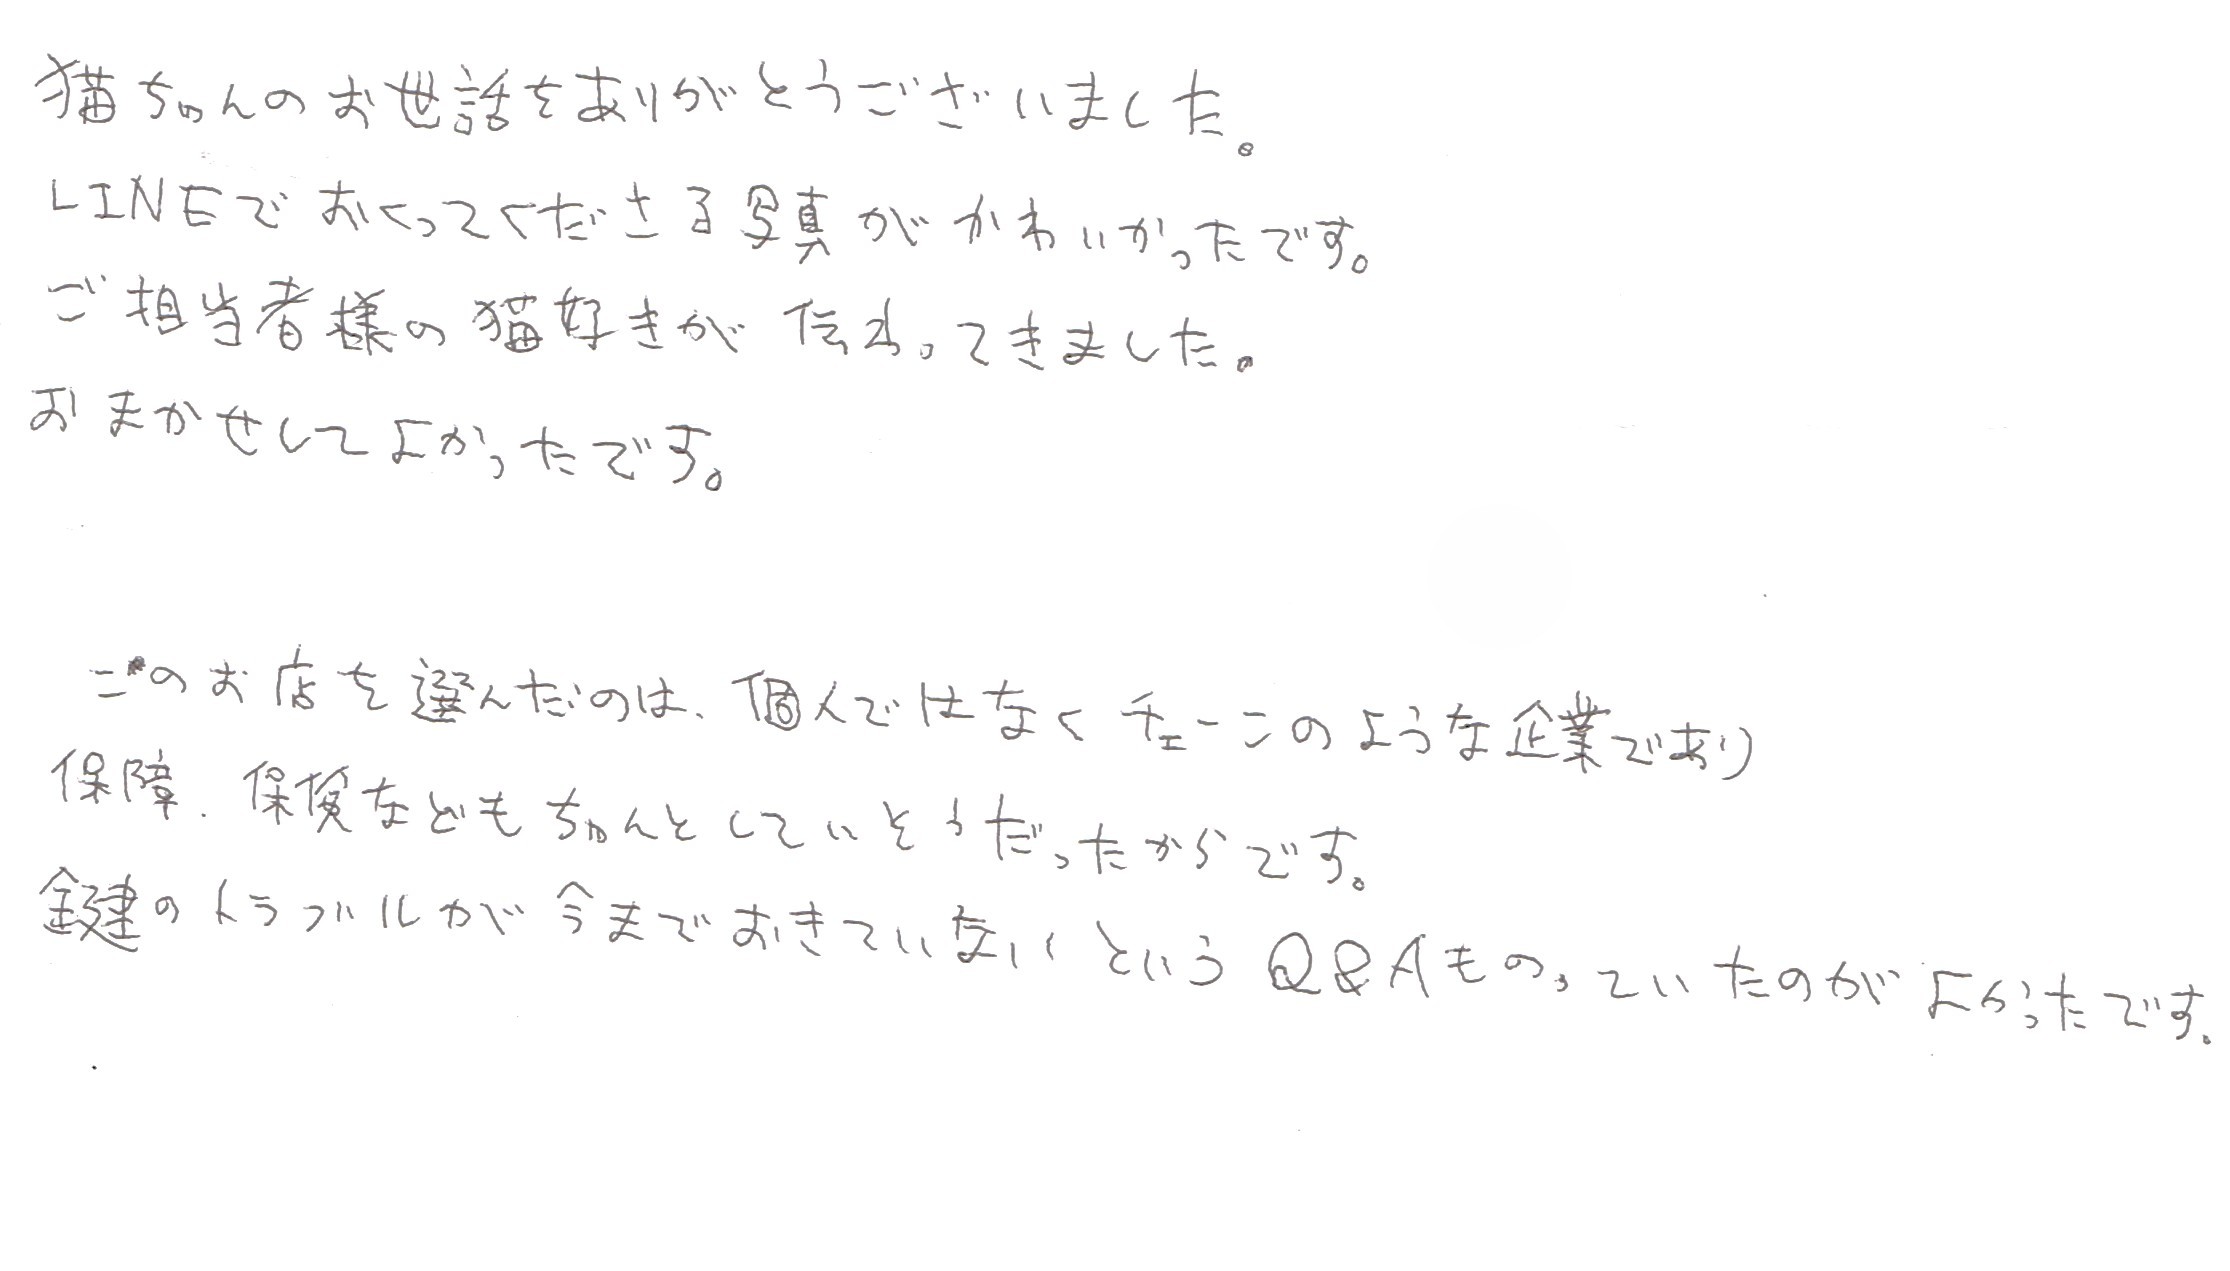 猫ちゃんのお世話をありがとうございました。
LINEでおくってくださる写真がかわいかったです。
ご担当者様の猫好きが伝わってきました。
おまかせしてよかったです。
このお店を選んだのは、個人ではなくチェーンのような企業であり
保障、保険などもちゃんとしていそうだったからです。
鍵のトラブルが今までおきていないというQ&Aものっていたのがよかったです。